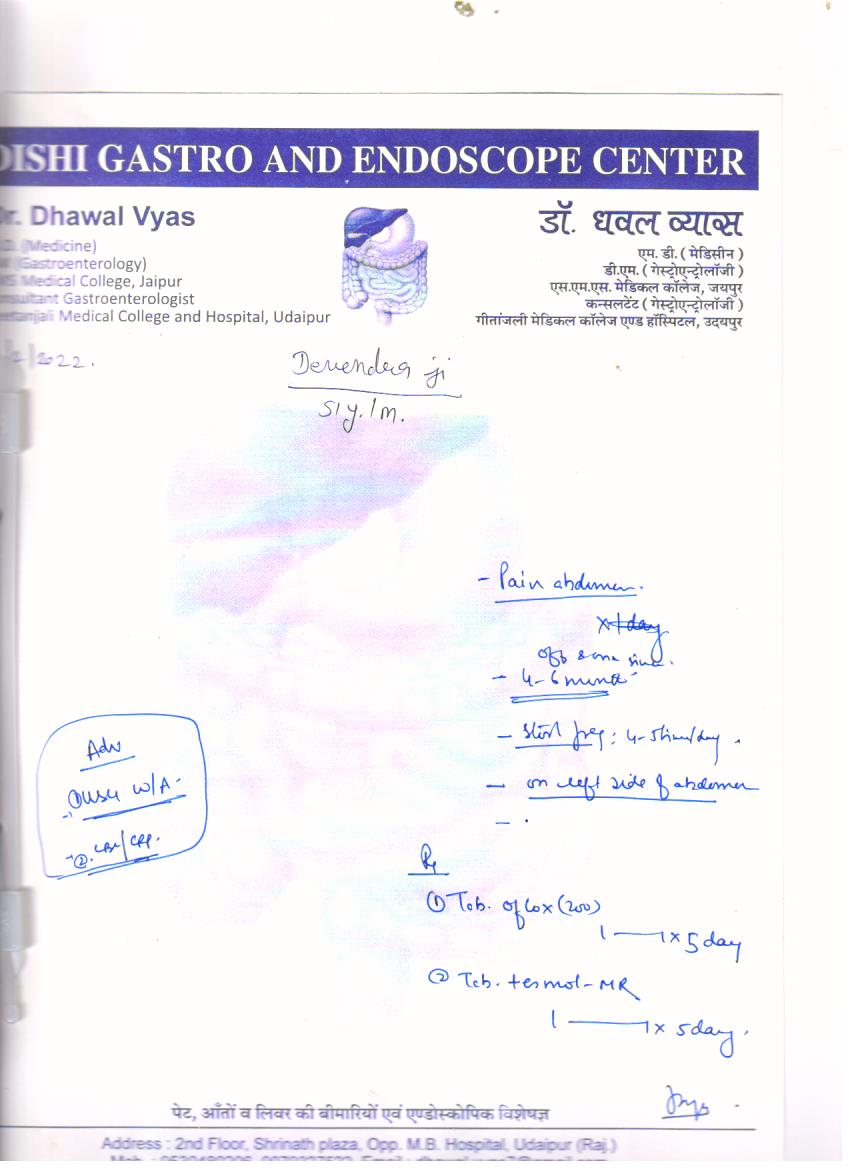 DISHI GASTRO AND ENDOSCOPE CENTER
Dr. Dhawal Vyas
(Medicine)
(Gastroenterology)
Medical College, Jaipur
Consultant Gastroenterologist
Medical College and Hospital, Udaipur
डॉ. धवल व्यास
एम. डी. ( मेडिसीन )
डी.एम. ( गेस्ट्रोएन्ट्रोलॉजी )
एस.एम.एस. मेडिकल कॉलेज, जयपुर
कन्सलटेंट ( गेस्ट्रोएन्ट्रोलॉजी )
गीतांजली मेडिकल कॉलेज एण्ड हॉस्पिटल, उदयपुर
/2022.
Devendra ji
51y./m.
- Pain abdomen.
x 1 day
- 4-6 month
- stool freq: 4-5time/day.
- on left side of abdomen
- .
Adv
① USG W/A.
② CBC/CRP.
Rx
① Tab. oflox (200)
1 — 1 x 5 day
② Tab. termol-MR
1 — 1 x 5 day.
पेट, आँतों व लिवर की बीमारियों एवं एण्डोस्कोपिक विशेषज्ञ
Address : 2nd Floor, Shrinath plaza, Opp. M.B. Hospital, Udaipur (Raj.)